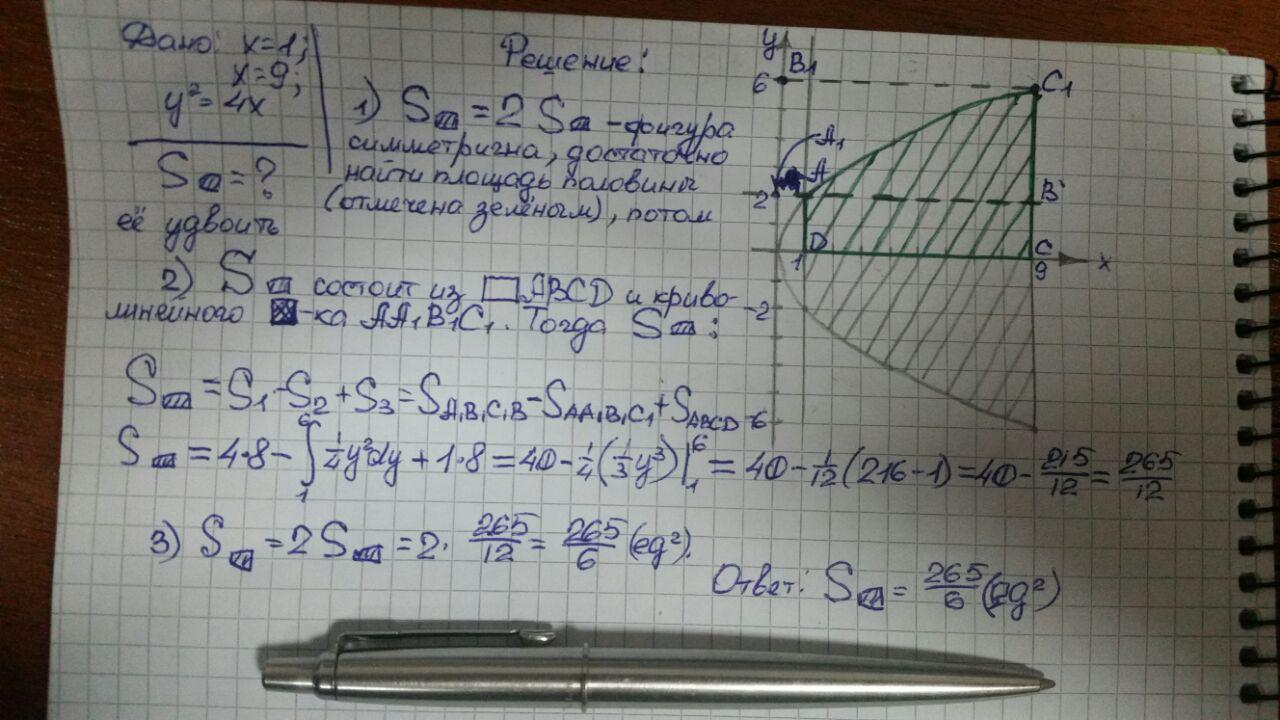 Дано: x=1;
x=9;
y²=4x
S=?
Решение:
1) S=2S -фигура
симметрична, достаточно
найти площадь половины
(отмечена зелёным), потом
её удвоить
2) S состоит из □ABCD и криво-
линейного -ка AA₁B₁C₁. Тогда S:
S=S₁-S₂+S₃=S A₁B₁C₁B-S AA₁B₁C₁+S ABCD
S=4·8-∫₁⁶ ¼y²dy+1·8=40-¼(⅓y³)|₁⁶=40-1/12(216-1)=40-215/12=265/12
3) S=2S=2·265/12=265/6 (ед²).
Ответ: S=265/6 (ед²)
y
6
B₁
C₁
A₁
A
2
B
D
C
1
9
x
-2
-6